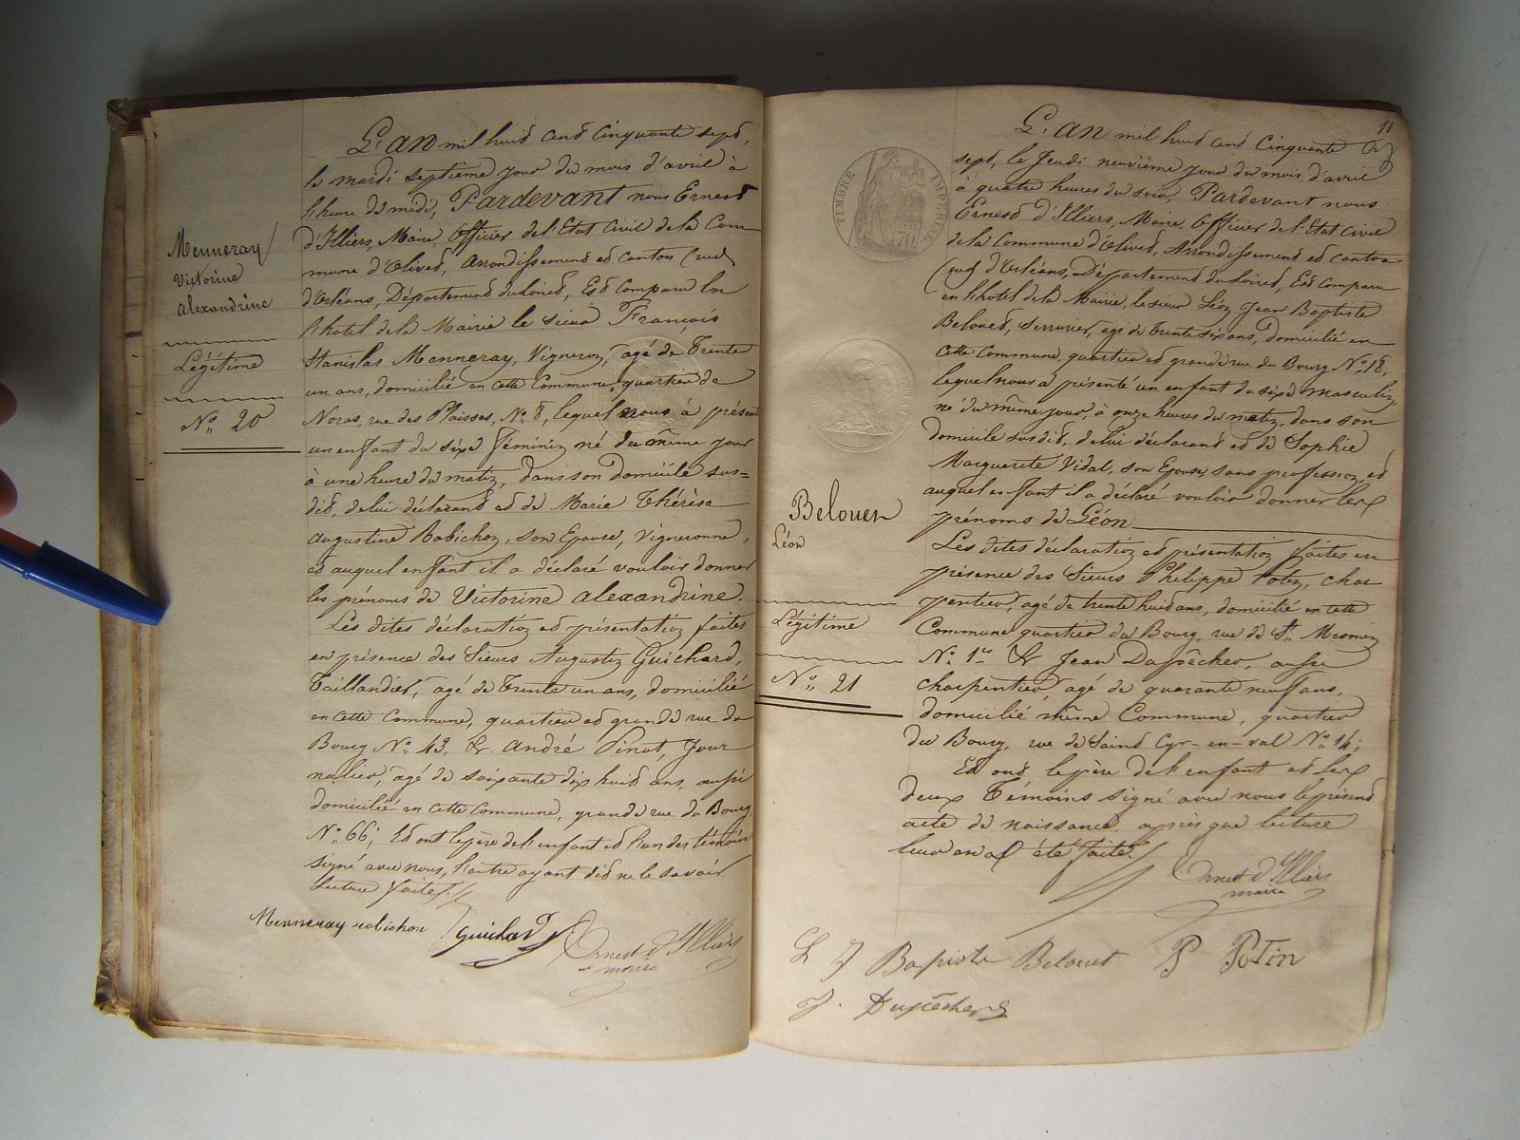 Menneray
Victorine
Alexandrine
Légitime
N° 20
L'an mil huit cent cinquante sept,
le mardi septième jour du mois d'avril à
l'heure de midi, Pardevant nous Ernest
d'Illiers, Maire, Officier de l'Etat Civil de la Com
mune d'Olivet, Arrondissement et canton (sud)
d'Orléans, Département du Loiret, Est comparu en
l'hotel de la Mairie le sieur François
Stanislas Menneray, Vigneron, agé de Trente
un ans, domicilié en cette Commune, quartier de
rue des Plaisses, N° 8, lequel nous à présen
un enfant du séxe féminin né du même jour
à une heure du matin, dans son Domicile sus=
dit, de lui déclarant et de Marie Thérèse
Augustine Robichon, son Epouse, Vigneronne,
et auquel enfant il a déclaré vouloir donner
les prénoms de Victorine Alexandrine.
Les dites déclaration et présentation faites
en présence des Sieurs Augustin Guichard,
Taillandier, agé de Trente un ans, domicilié
en cette Commune, quartier et grande rue du
Bourg N° 43, & André Pinot, Jour
nalier, agé de soixante dix huit ans, aussi
domicilié en cette Commune, grande rue du Bourg
N° 66; Et ont le père de l'enfant et l'un des témoins
signé avec nous, l'autre ayant dit ne le savoir
lecture faite.
Menneray robichon Guichard Ernest d'Illiers
maire
11
TIMBRE IMPERIAL
Belouet
Léon
Légitime
N° 21
L'an mil huit cent cinquante
sept, le Jeudi neuvième jour du mois d'avril
à quatre heures du soir, Pardevant nous
Ernest d'Illiers, Maire, Officier de l'Etat Civil
de la Commune d'Olivet, Arrondissement et canton
(sud) d'Orléans, Département du Loiret, Est comparu
en l'hotel de la Mairie, le sieur Léon Jean Baptiste
Belouet, serrurier, agé de trente six ans, domicilié en
cette Commune, quartier et grande rue du Bourg N° 18,
lequel nous a présenté un enfant du séxe masculin,
né du même jour, à onze heures du matin, dans son
domicile susdit, de lui déclarant et de Sophie
Marguerite Vidal, son Epouse, sans profession, et
auquel enfant il a déclaré vouloir donner les
prénoms de Léon
Les dites déclaration et présentation faites en
présence des Sieurs Philippe Potin, char
pentier, agé de trente huit ans, domicilié en cette
Commune quartier du Bourg, rue de St Mesmin
N° 1er & Jean Dupêcher, aussi
charpentier, agé de quarante neuf ans,
domicilié même Commune, quartier
du Bourg, rue de Saint Cyr-en-val N° 14;
Et ont, le père de l'enfant et les
deux Témoins signé avec nous le présent
acte de naissance, après que lecture
leur en a été faite.
Ernest d'Illiers
maire
L J Baptiste Belouet P Potin
J. Dupêcher